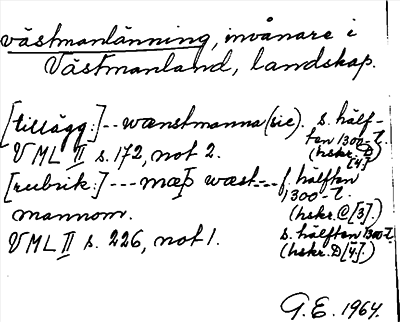 västmanlänning, invånare i
Västmanland, landskap.
[tillägg:]--wænstmanna (sic). s. hälf-
ten 1300-t.
VML II s. 172, not 2. (hskr. D
[4])
[rubrik:]---mæþ wæst--- f. hälften
1300-t.
mannom. (hskr. C [3].)
VML II s. 226, not 1. s. hälften 1300-t.
(hskr. D [4].)
G.E. 1964.